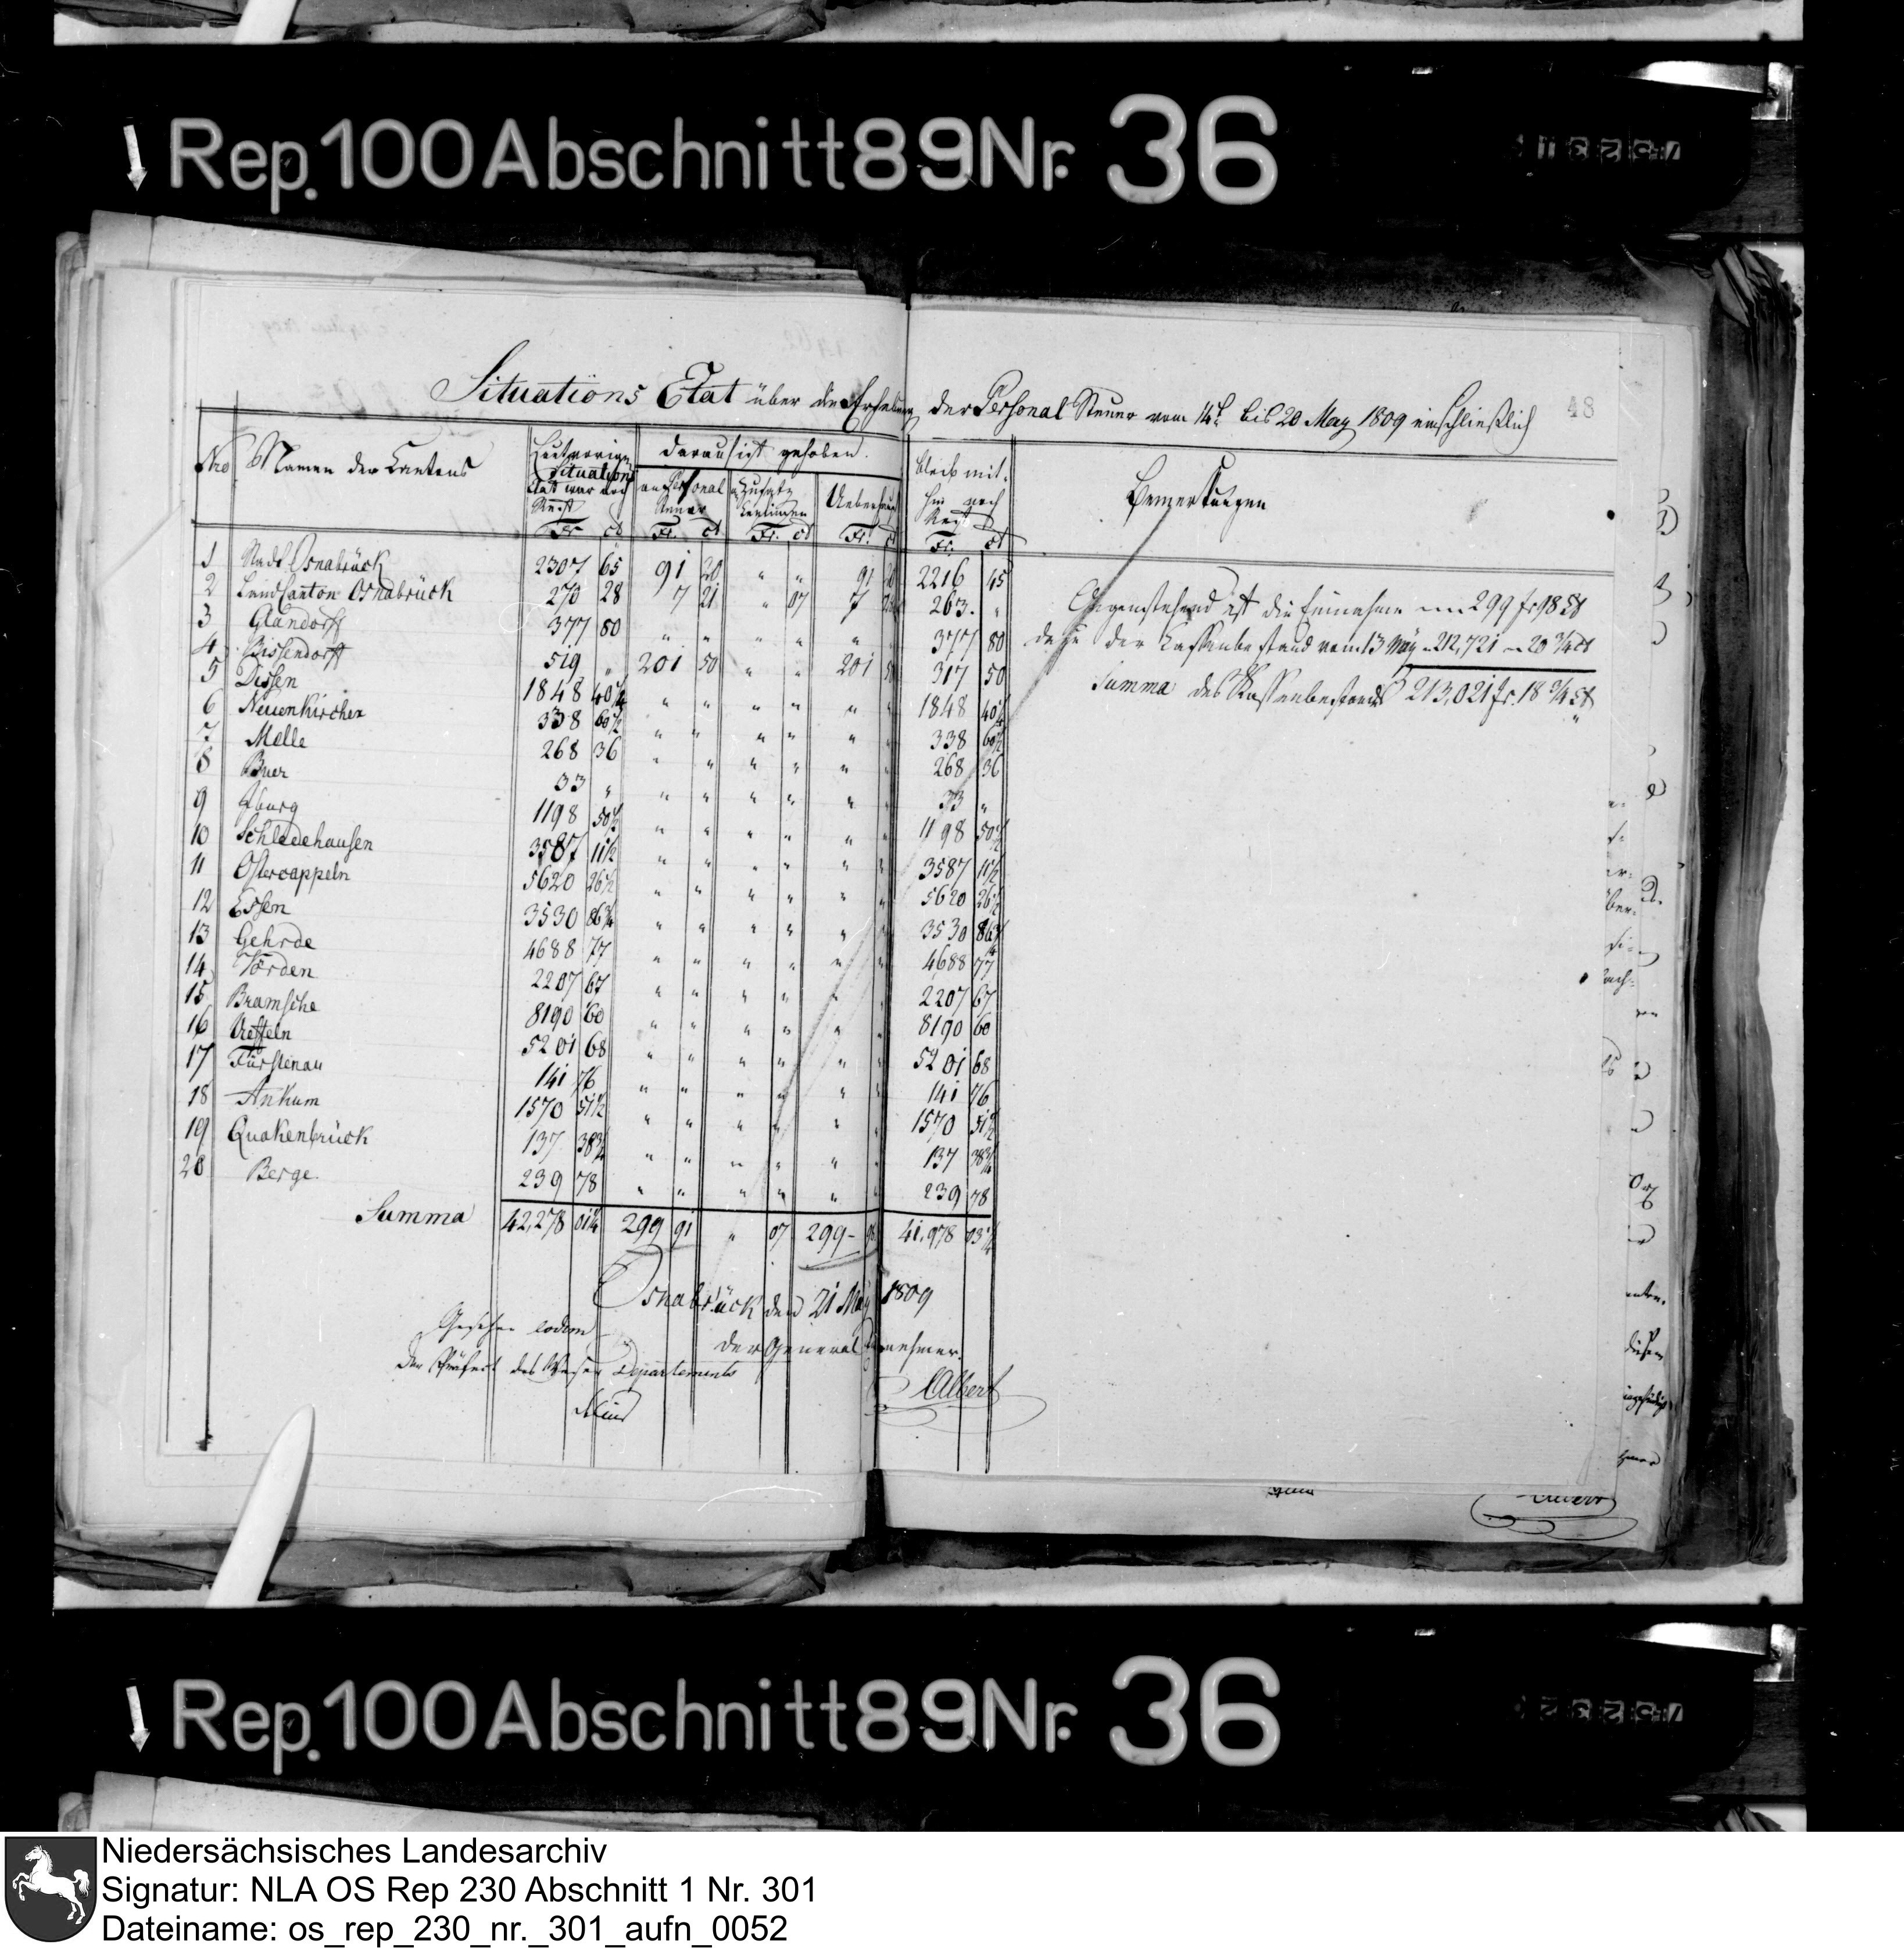 Rep. 100 Abschnitt 89 Nr. 36
48
Situations Etat über die Erhebung der Personal Steuer vom 14t bis 20 May 1809 einschließlich
Nro Namen der Cantons Laut vorigen Situations Etat war noch Rest daraus ist gehoben. bleib mithin noch Rest Bemerkungen
an Personal Steuer a Zusatz Centimen Ueberhaupt
Fr. ct Fr. ct Fr. ct Fr. ct Fr. ct
1 Stadt Osnabrück 2307 65 91 20 " " 91 20 2216 45
2 Land Canton Osnabrück 270 28 7 21 " 07 7 28 263. "
3 Glandorff 377 80 " " " " " " 377 80
4 Bissendorff 519 " 201 50 " " 201 50 317 50
5 Dissen 1848 40 1/4 " " " " " " 1848 40 1/4
6 Neuenkirchen 338 60 1/2 " " " " " " 338 60 1/2
7 Melle 268 36 " " " " " " 268 36
8 Buer 33 " " " " " " " 33 "
9 Iburg 1198 50 1/2 " " " " " " 1198 50 1/2
10 Schledehausen 3587 11 1/2 " " " " " " 3587 11 1/2
11 Ostercappeln 5620 26 1/2 " " " " " " 5620 26 1/2
12 Essen 3530 86 3/4 " " " " " " 3530 86 3/4
13 Gehrde 4688 77 " " " " " " 4688 77
14 Vörden 2207 67 " " " " " " 2207 67
15 Bramsche 8190 60 " " " " " " 8190 60
16 Ueffeln 5201 68 " " " " " " 5201 68
17 Fürstenau 141 76 " " " " " " 141 76
18 Ankum 1570 51 1/2 " " " " " " 1570 51 1/2
19 Quakenbrück 137 38 3/4 " " " " " " 137 38 3/4
20 Berge 239 78 " " " " " " 239 78
Summa 42,278 01 1/4 299 91 " 07 299 98 41,978 03 1/4
Gegenstehend ist die Einnahme 299 fr 98 ct
dazu der Kassenbestand vom 13 May 212,721 20 3/4 ct
Summa des Kassenbestandes 213,021 fr. 18 3/4 ct
Osnabrück den 21 May 1809
der General Einnehmer.
Albert
Gesehen eodem
Der Präfect des Weser Departements
Rep. 100 Abschnitt 89 Nr. 36
Niedersächsisches Landesarchiv
Signatur: NLA OS Rep 230 Abschnitt 1 Nr. 301
Dateiname: os_rep_230_nr._301_aufn_0052